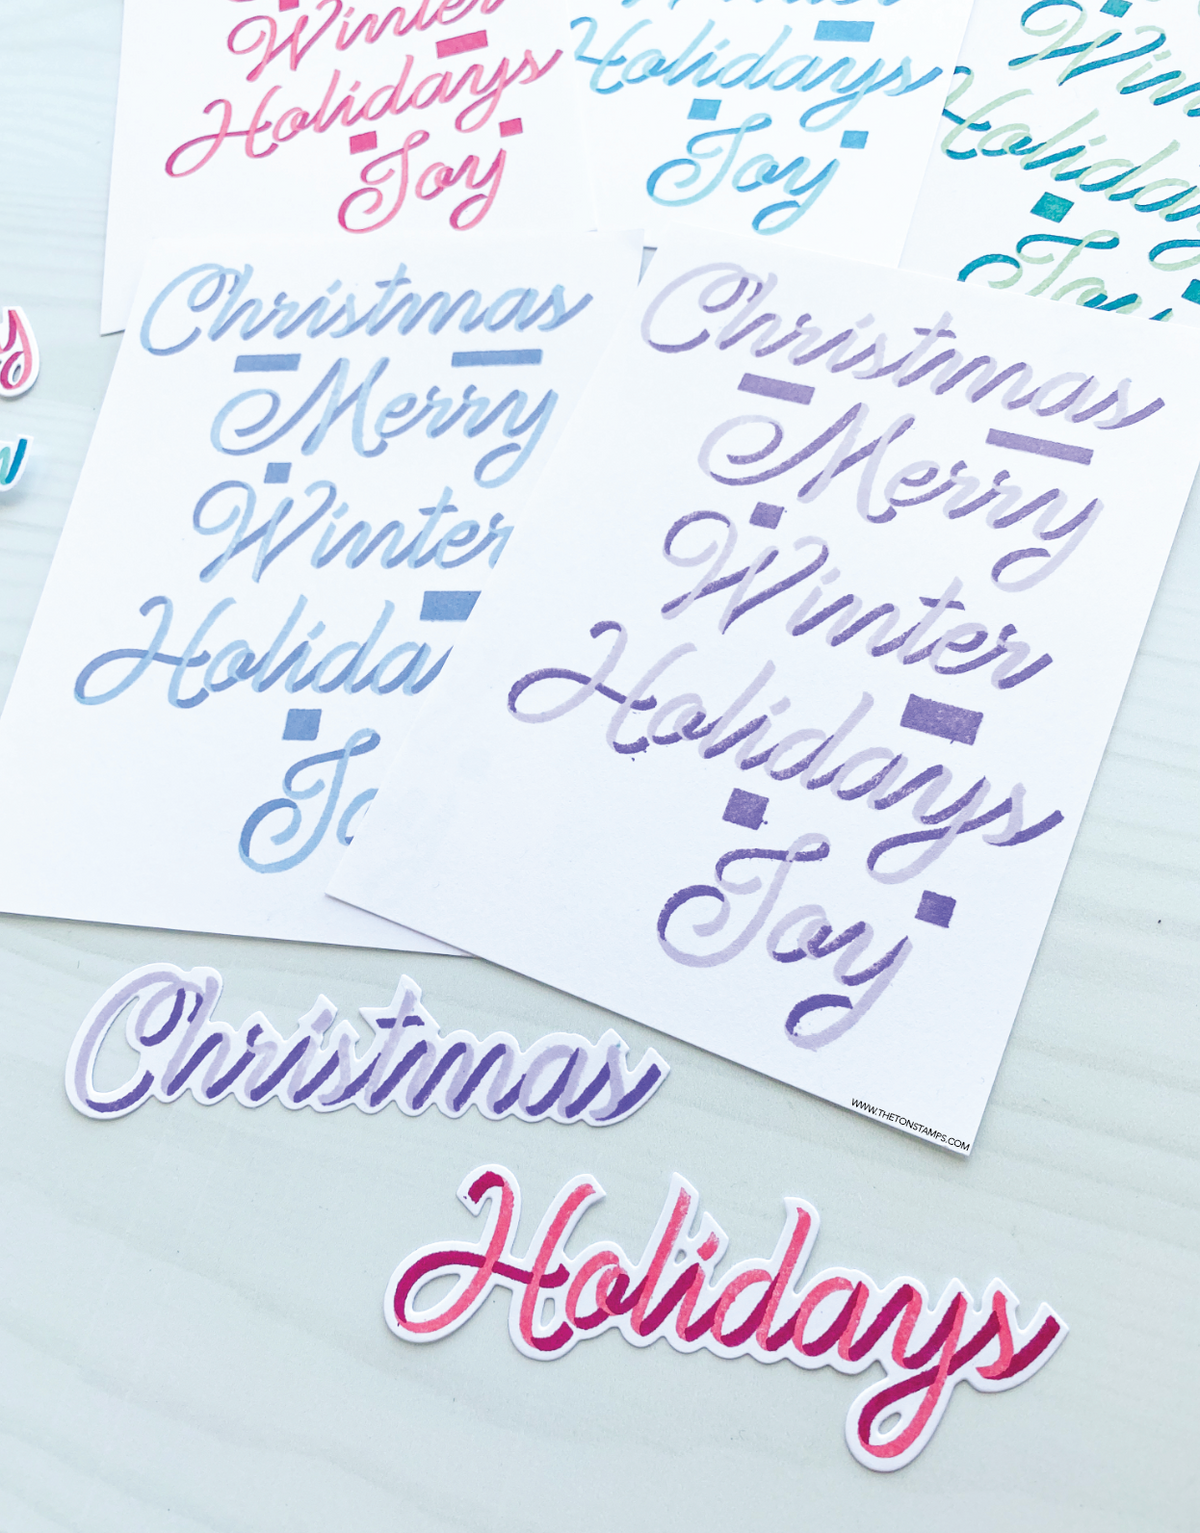 Winter
Holidays
Joy
Holidays
Joy
Christmas
Merry
Winter
Holida
Jo
Christmas
Merry
Winter
Holidays
Joy
WWW.THETONSTAMPS.COM
Christmas
Holidays